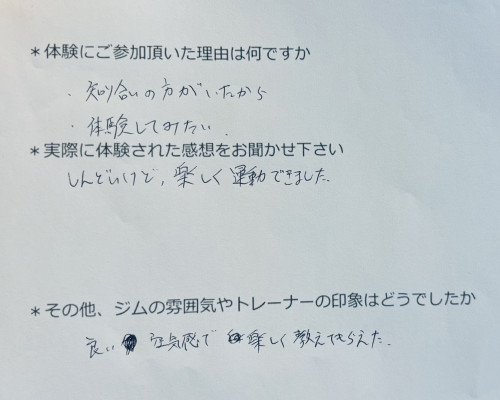 ＊体験にご参加頂いた理由は何ですか
・知り合いの方がいたから
・体験してみたい.
＊実際に体験された感想をお聞かせ下さい
しんどいけど、楽しく運動できました.
＊その他、ジムの雰囲気やトレーナーの印象はどうでしたか
良い空気感で楽しく教えてもらえた.